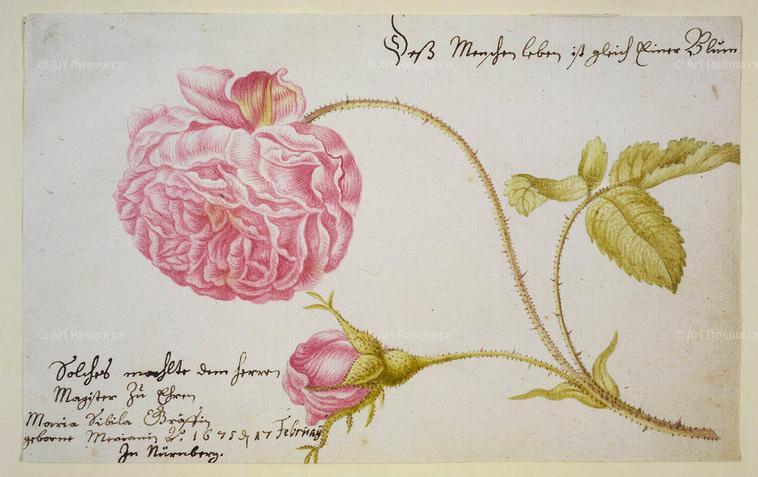 Deß Menschen leben ist gleich Einer Blum
Solches mahlte dem herren
Magister Zu Ehren
Maria Sibila Gräffin
geborne Merianin A: 1675 d 17 Februaÿ
In Nürnberg.
© Art Resource
© Art Resource
© Art Resource
© Art Resource
© Art Resource
© Art Resource